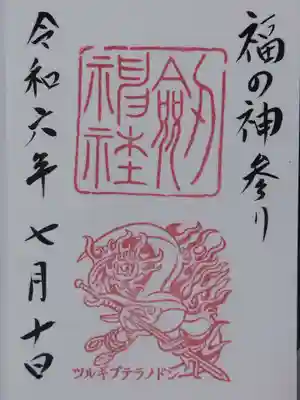 福の神参り
劔神社
令和六年 七月十日
ツルギプテラノドン